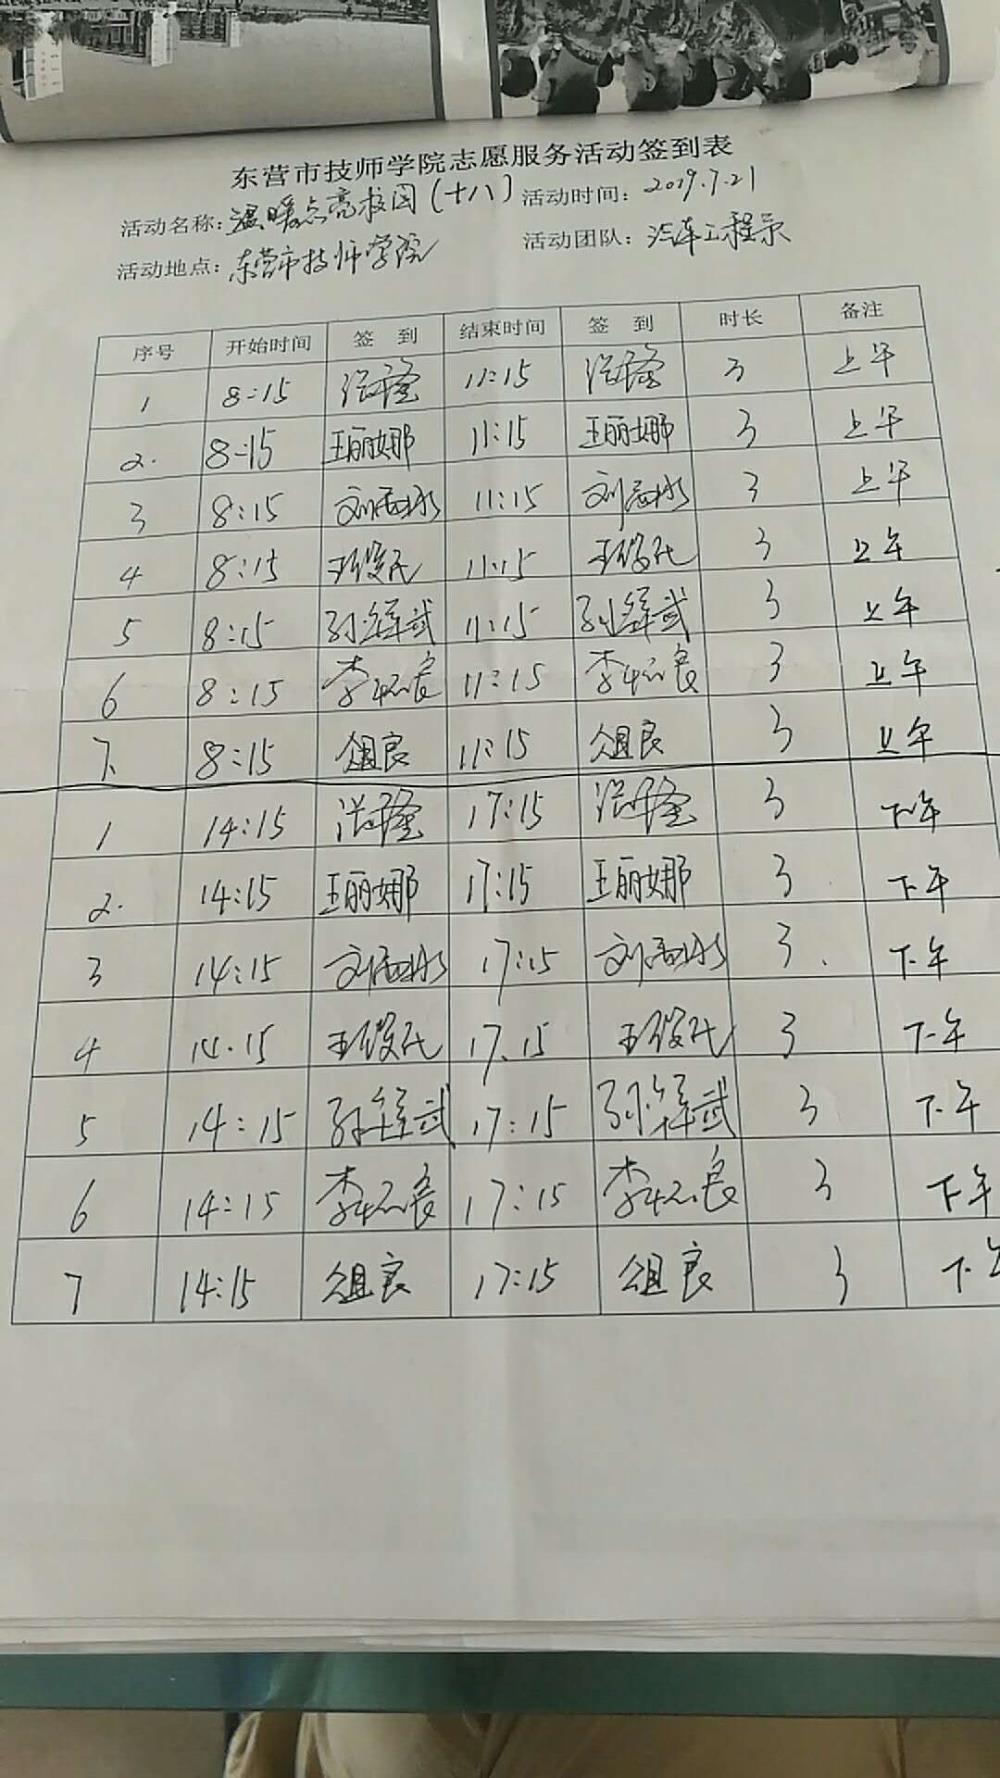 东营市技师学院志愿服务活动签到表
活动名称:温暖点亮校园(十八) 活动时间: 2019.7.21
活动地点: 东营市技师学院 活动团队: 汽车工程系
序号 开始时间 签 到 结束时间 签 到 时长 备注
1 8:15 11:15 3 上午
2. 8:15 王丽娜 11:15 王丽娜 3 上午
3 8:15 11:15 3 上午
4 8:15 王俊民 11:15 王俊民 3 上午
5 8:15 11:15 3 上午
6 8:15 11:15 3 上午
7. 8:15 11:15 3 上午
1 14:15 17:15 3 下午
2. 14:15 王丽娜 17:15 王丽娜 3 下午
3 14:15 17:15 3 下午
4 14.15 王俊民 17.15 王俊民 3 下午
5 14:15 17:15 3 下午
6 14:15 17:15 3 下午
7 14:15 17:15 3 下午